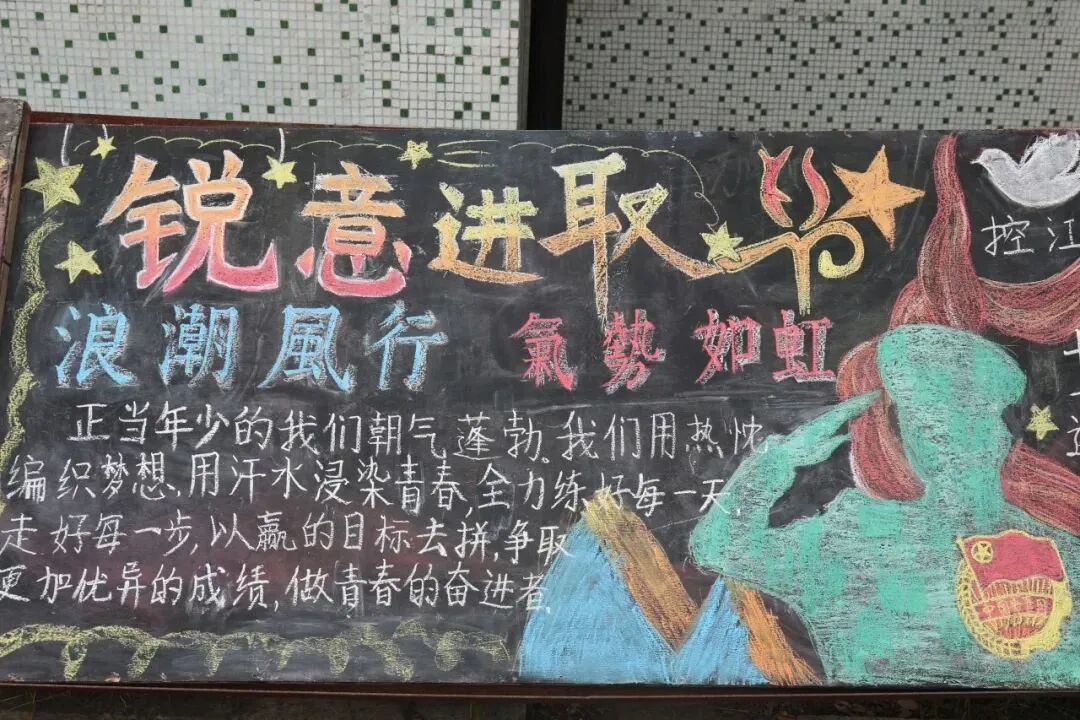 锐意进取
浪潮風行 氣勢如虹
正当年少的我们朝气蓬勃.我们用热忱
编织梦想.用汗水浸染青春,全力练好每一天,
走好每一步,以赢的目标去拼,争取
更加优异的成绩,做青春的奋进者.
控江